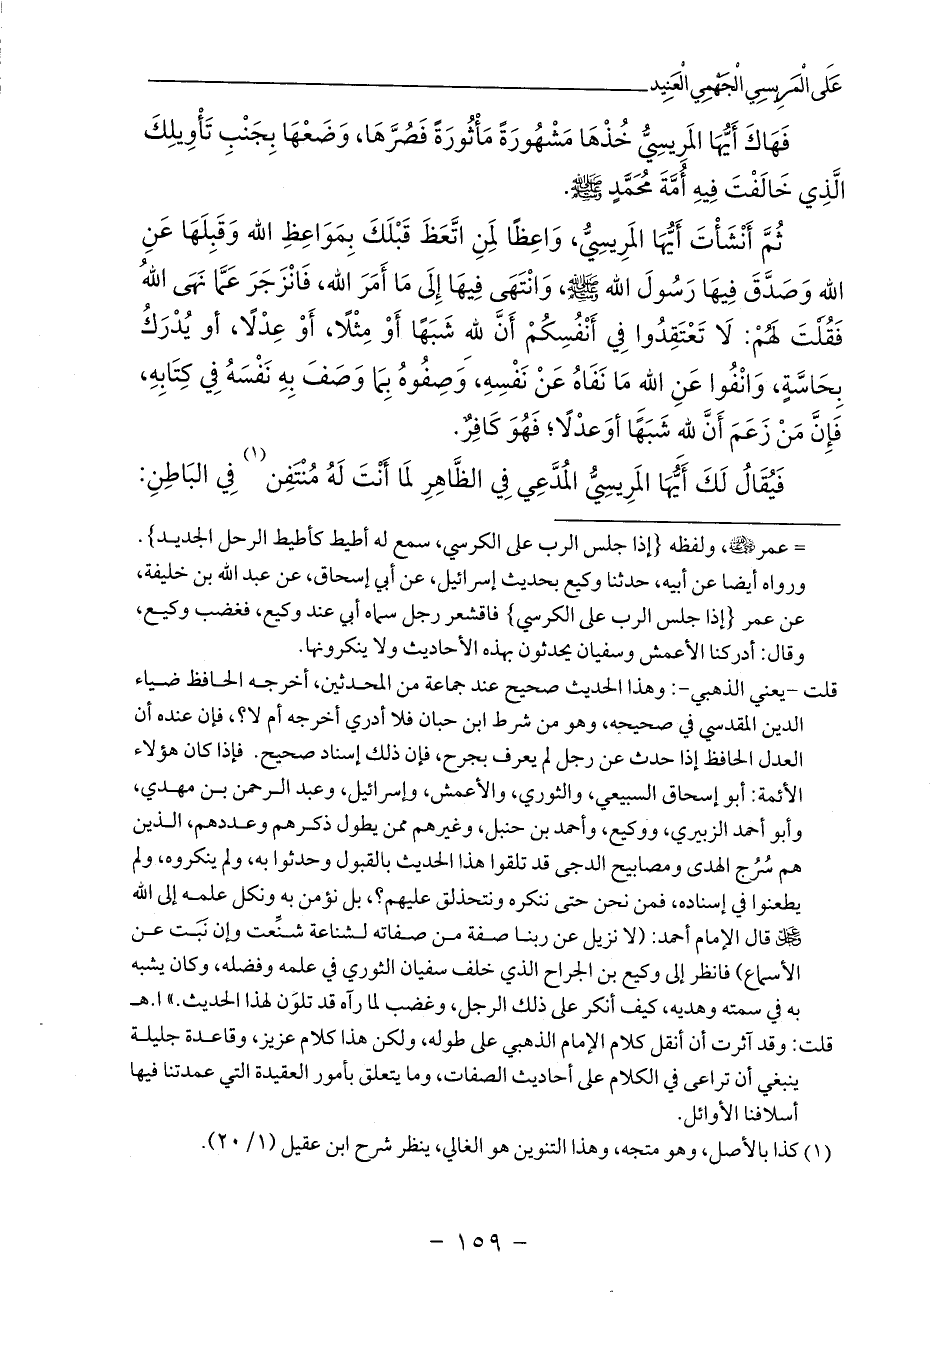 عَلَى الْمَرِيسِي الْجَهْمِي الْعَنِيد
فَهَاكَ أَيُّهَا المَرِيسِيُّ خُذْهَا مَشْهُورَةً مَأْثُورَةً فَصُرَّهَا، وَضَعْهَا بِجَنْبِ تَأْوِيلِكَ
الَّذِي خَالَفْتَ فِيهِ أُمَّةَ مُحَمَّدٍ ﷺ.
ثُمَّ أَنْشَأْتَ أَيُّهَا المَرِيسِيُّ، وَاعِظًا لِمَنِ اتَّعَظَ قَبْلَكَ بِمَوَاعِظِ الله وَقَبِلَهَا عَنِ
الله وَصَدَّقَ فِيهَا رَسُولَ الله ﷺ، وَانْتَهَى فِيهَا إِلَى مَا أَمَرَ الله، فَانْزَجَرَ عَمَّا نَهَى اللهُ
فَقُلْتَ لَهُمْ: لَا تَعْتَقِدُوا فِي أَنْفُسِكُمْ أَنَّ لله شَبَهًا أَوْ مِثْلًا، أَوْ عِدْلًا، أو يُدْرَكُ
بِحَاسَّةٍ، وَانْفُوا عَنِ الله مَا نَفَاهُ عَنْ نَفْسِهِ، وَصِفُوهُ بِمَا وَصَفَ بِهِ نَفْسَهُ فِي كِتَابِهِ،
فَإِنَّ مَنْ زَعَمَ أَنَّ لله شَبَهًا أوعِدْلًا؛ فَهُوَ كَافِرٌ.
فَيُقَالُ لَكَ أَيُّهَا المَرِيسِيُّ المُدَّعِي فِي الظَّاهِرِ لمَا أَنْتَ لَهُ مُنْتَفِن(١) فِي البَاطِنِ:
= عمر ﷺ، ولفظه {إذا جلس الرب على الكرسي، سمع له أطيط كأطيط الرحل الجديد}.
ورواه أيضا عن أبيه، حدثنا وكيع بحديث إسرائيل، عن أبي إسحاق، عن عبد الله بن خليفة،
عن عمر {إذا جلس الرب على الكرسي} فاقشعر رجل سماه أبي عند وكيع، فغضب وكيع،
وقال: أدركنا الأعمش وسفيان يحدثون بهذه الأحاديث ولا ينكرونها.
قلت –يعني الذهبي–: وهذا الحديث صحيح عند جماعة من المحدثين، أخرجه الحافظ ضياء
الدين المقدسي في صحيحه، وهو من شرط ابن حبان فلا أدري أخرجه أم لا؟، فإن عنده أن
العدل الحافظ إذا حدث عن رجل لم يعرف بجرح، فإن ذلك إسناد صحيح. فإذا كان هؤلاء
الأئمة: أبو إسحاق السبيعي، والثوري، والأعمش، وإسرائيل، وعبد الرحمن بن مهدي،
وأبو أحمد الزبيري، ووكيع، وأحمد بن حنبل، وغيرهم ممن يطول ذكرهم وعددهم، الذين
هم سُرُج الهدى ومصابيح الدجى قد تلقوا هذا الحديث بالقبول وحدثوا به، ولم ينكروه، ولم
يطعنوا في إسناده، فمن نحن حتى ننكره ونتحذلق عليهم؟، بل نؤمن به ونكل علمه إلى الله
قال الإمام أحمد: (لا نزيل عن ربنا صفة من صفاته لشناعة شنِّعت وإن نَبَت عن
الأسماع) فانظر إلى وكيع بن الجراح الذي خلف سفيان الثوري في علمه وفضله، وكان يشبه
به في سمته وهديه، كيف أنكر على ذلك الرجل، وغضب لما رآه قد تلوَن لهذا الحديث.» ا.هـ
قلت: وقد آثرت أن أنقل كلام الإمام الذهبي على طوله، ولكن هذا كلام عزيز، وقاعدة جليلة
ينبغي أن تراعى في الكلام على أحاديث الصفات، وما يتعلق بأمور العقيدة التي عمدتنا فيها
أسلافنا الأوائل.
(١) كذا بالأصل، وهو متجه، وهذا التنوين هو الغالي، ينظر شرح ابن عقيل (١/ ٢٠).
– ١٥٩ –